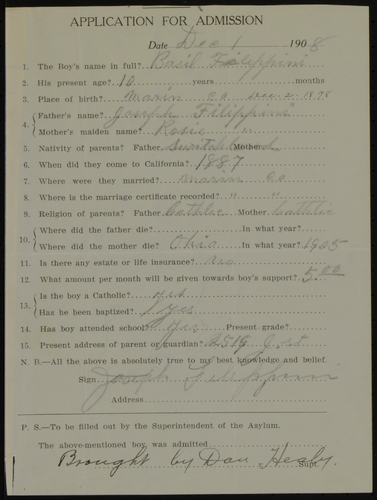 APPLICATION FOR ADMISSION
Date Dec 1 1908
1. The Boy's name in full? Basil Filippini
2. His present age? 10 years months
3. Place of birth? Marin Co Dec 2 1898
4. Father's name? Joseph Filippini
Mother's maiden name? Rosie "
5. Nativity of parents? Father Mother
6. When did they come to California? 1887
7. Where were they married? Marin Co
8. Where is the marriage certificate recorded? " "
9. Religion of parents? Father Cathlic Mother Cathlic
10. Where did the father die? In what year?
Where did the mother die? Ohio In what year? 1905
11. Is there any estate or life insurance? No
12. What amount per month will be given towards boy's support? 5.00
13. Is the boy a Catholic? yes
Has he been baptized? yes
14. Has boy attended school? yes Present grade?
15. Present address of parent or guardian? 2519 G St
N. B.—All the above is absolutely true to my best knowledge and belief.
Sign Joseph Filippini
Address
P. S.—To be filled out by the Superintendent of the Asylum.
The above-mentioned boy, was admitted
Brought by Dan Healy Supt.